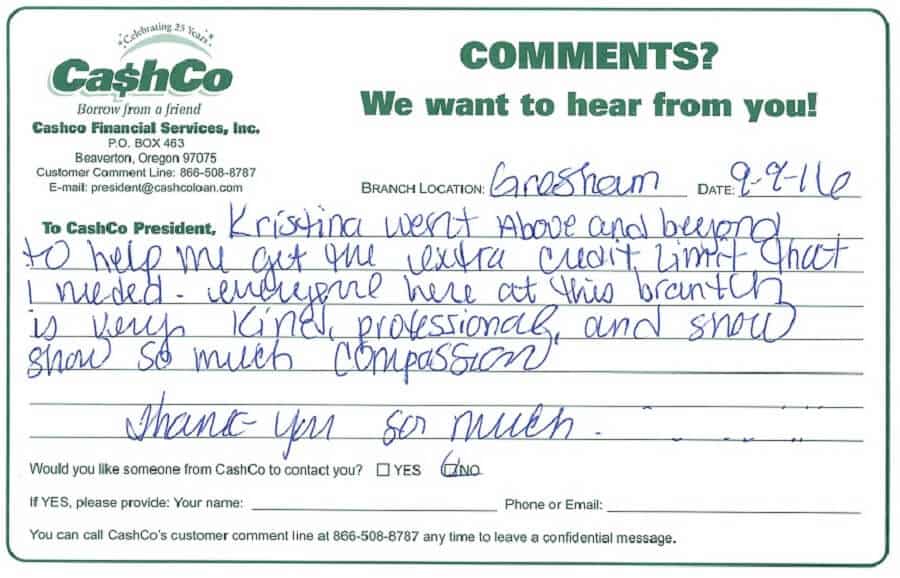 Celebrating 25 Years
Ca$hCo
Borrow from a friend
Cashco Financial Services, Inc.
P.O. BOX 463
Beaverton, Oregon 97075
Customer Comment Line: 866-508-8787
E-mail: president@cashcoloan.com
COMMENTS?
We want to hear from you!
BRANCH LOCATION: Gresham DATE: 9-9-16
To CashCo President, Kristina went Above and beyond
to help me get the extra credit limit that
I needed. everyone here at this brantch
is very kind, professional, and show
show so much compassion
Thank you so much.
Would you like someone from CashCo to contact you? YES NO
If YES, please provide: Your name: Phone or Email:
You can call CashCo's customer comment line at 866-508-8787 any time to leave a confidential message.